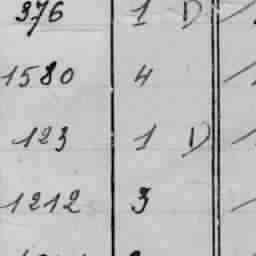 376 1 D
1580 4
123 1 D
1212 3